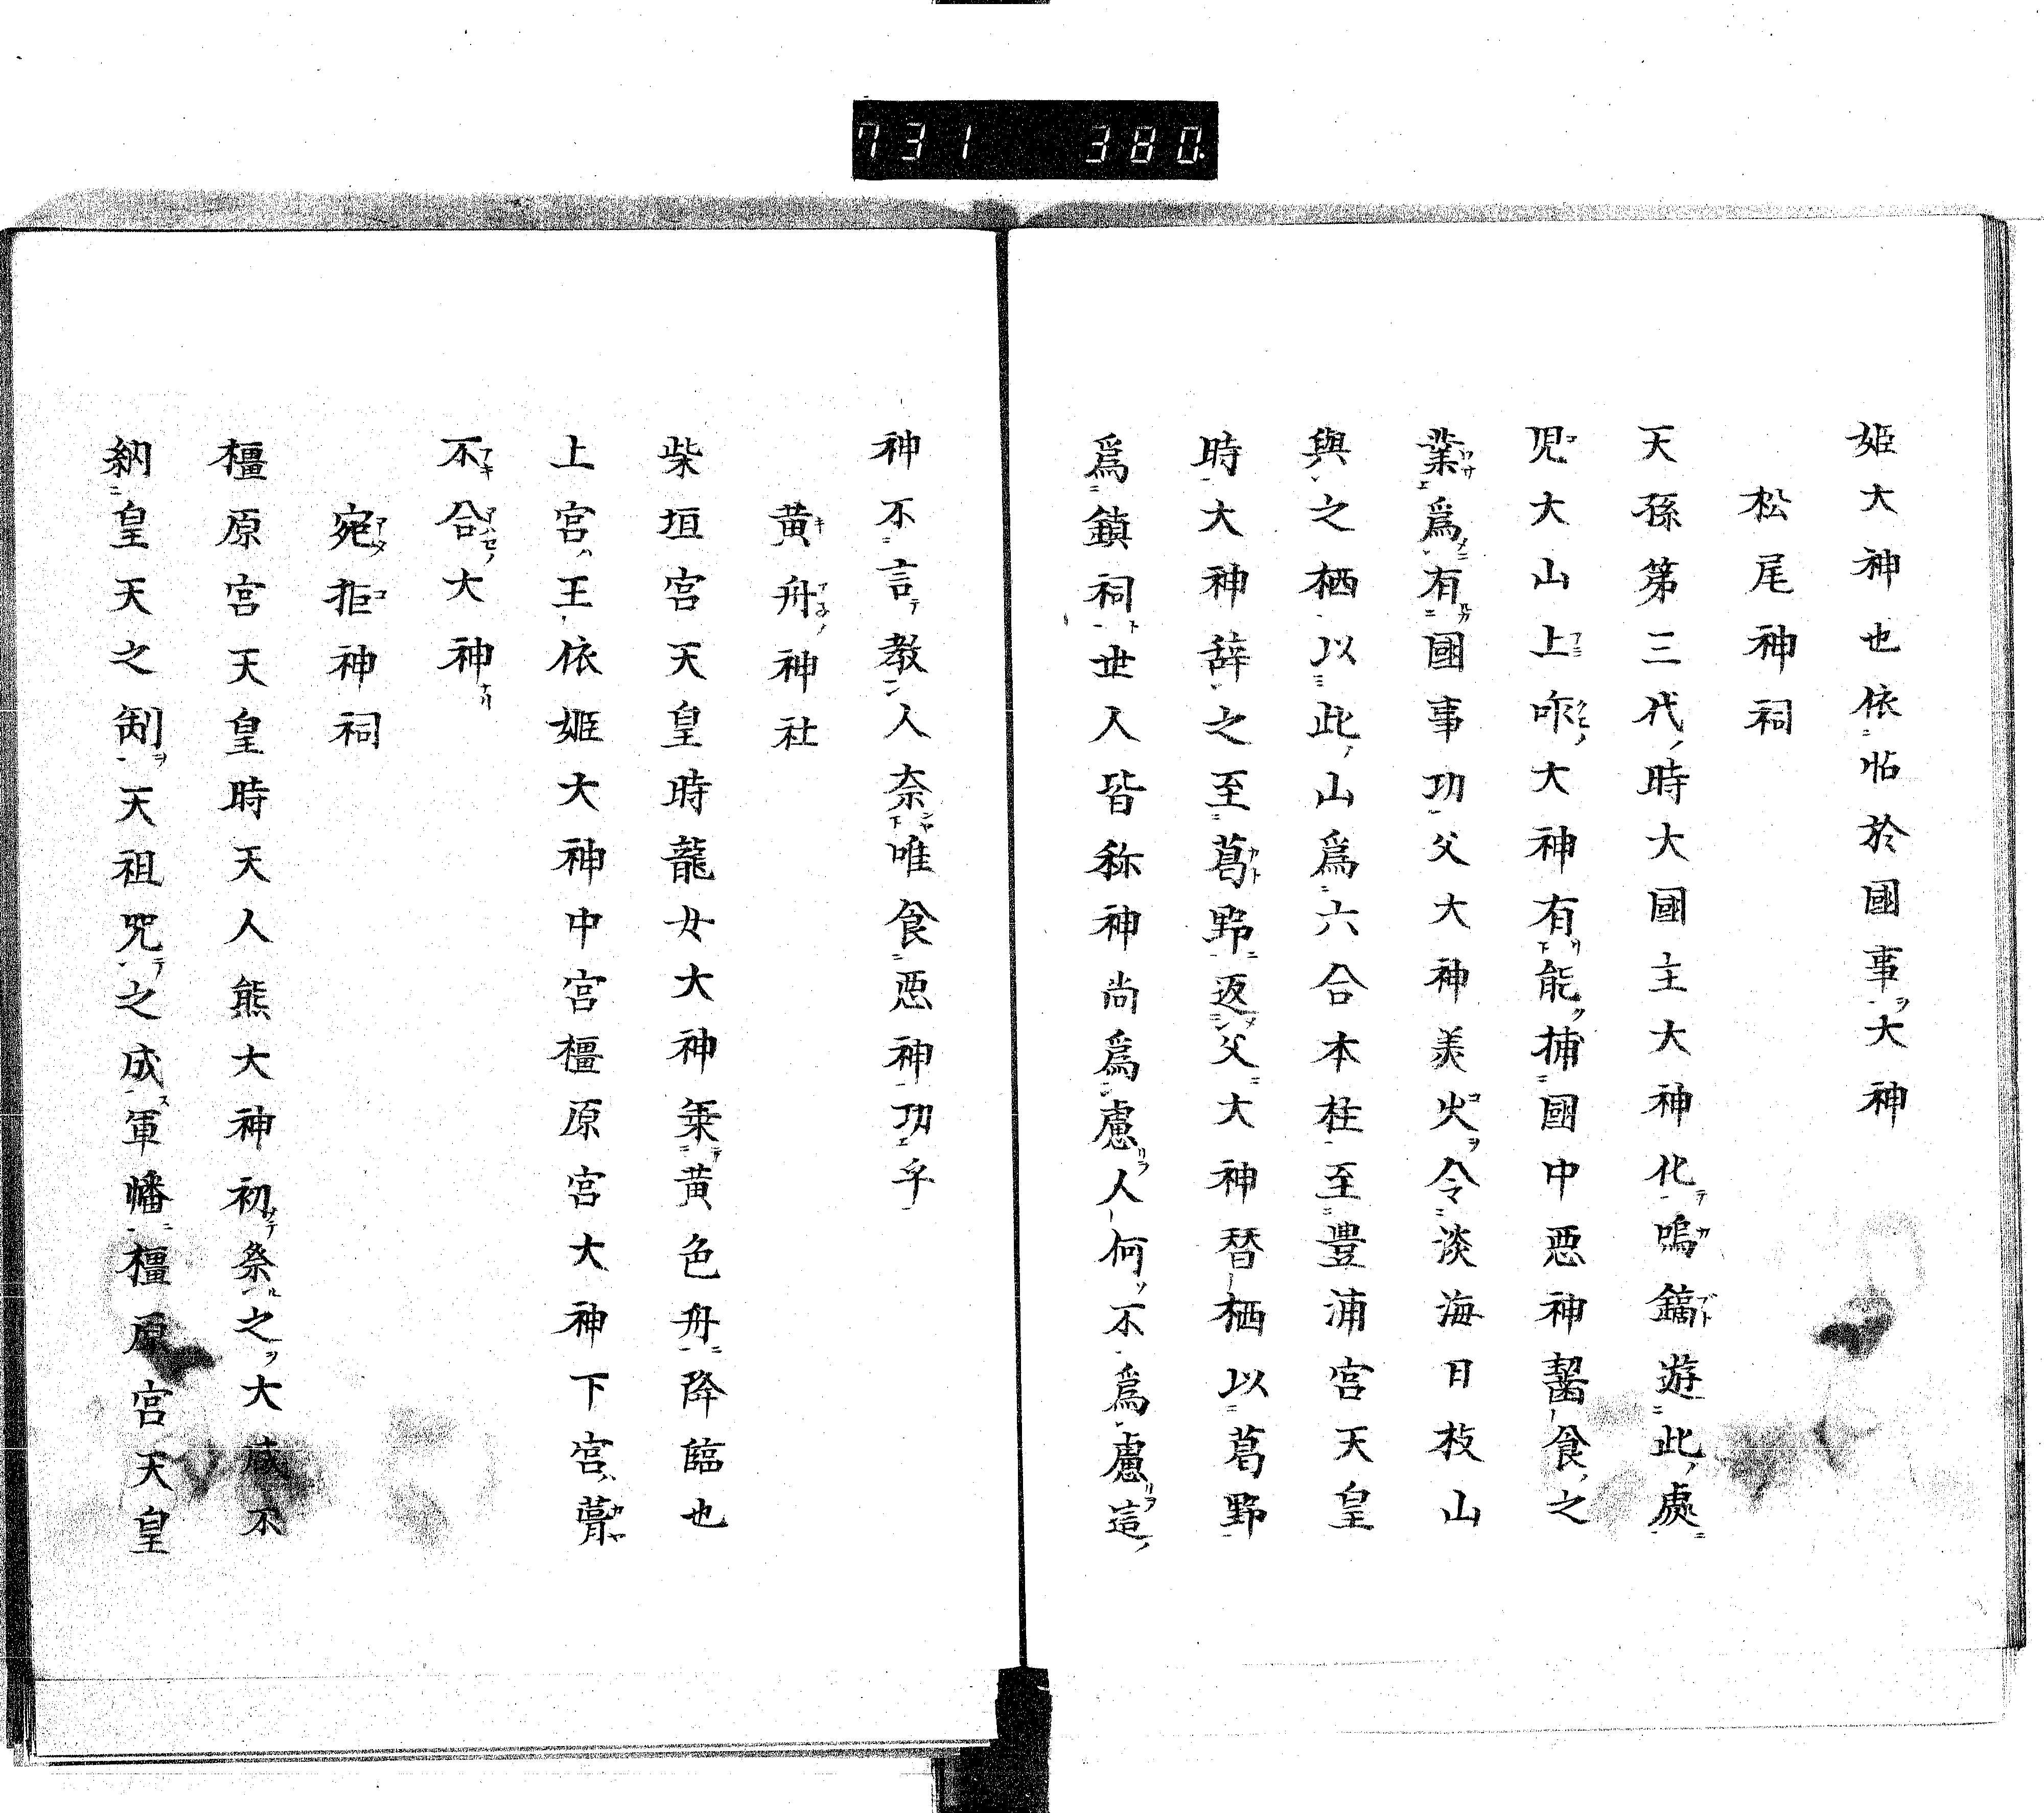 731 380
姫大神也依怙於國事大神
松尾神祠
天孫第三代時大國主大神化嗚鏑遊此處
児大山上咋大神有能捕國中悪神齧食之
業爲有國事功父大神羙火令淡海日枝山
與之栖以此山爲六合本柱至豊浦宮天皇
時大神辞之至葛野返父大神替栖以葛野
爲鎮祠世人皆称神尚爲慮人何不爲慮這
神不言教人奈唯食悪神功乎
黄舟神社
柴垣宮天皇時龍女大神乗黄色舟降臨也
上宮王依姫大神中宮橿原宮大神下宮葺
不合大神
宛拒神祠
橿原宮天皇時天人熊大神初祭之大歳不
納皇天之制天祖咒之成軍幡橿原宮天皇